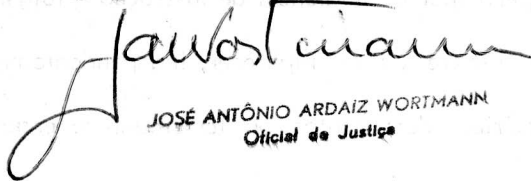 JAWortmann
JOSÉ ANTÔNIO ARDAIZ WORTMANN
Oficial de Justiça